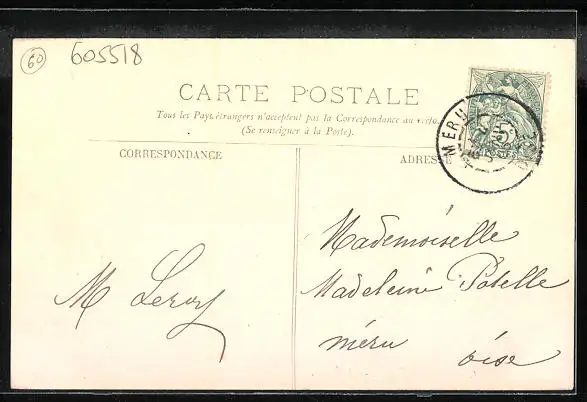 60
605518
CARTE POSTALE
Tous les Pays étrangers n'acceptent pas la Correspondance au recto.
(Se renseigner à la Poste).
CORRESPONDANCE
ADRESSE
MERU
M Leroy
Mademoiselle
Madeleine Potelle
méru
oise